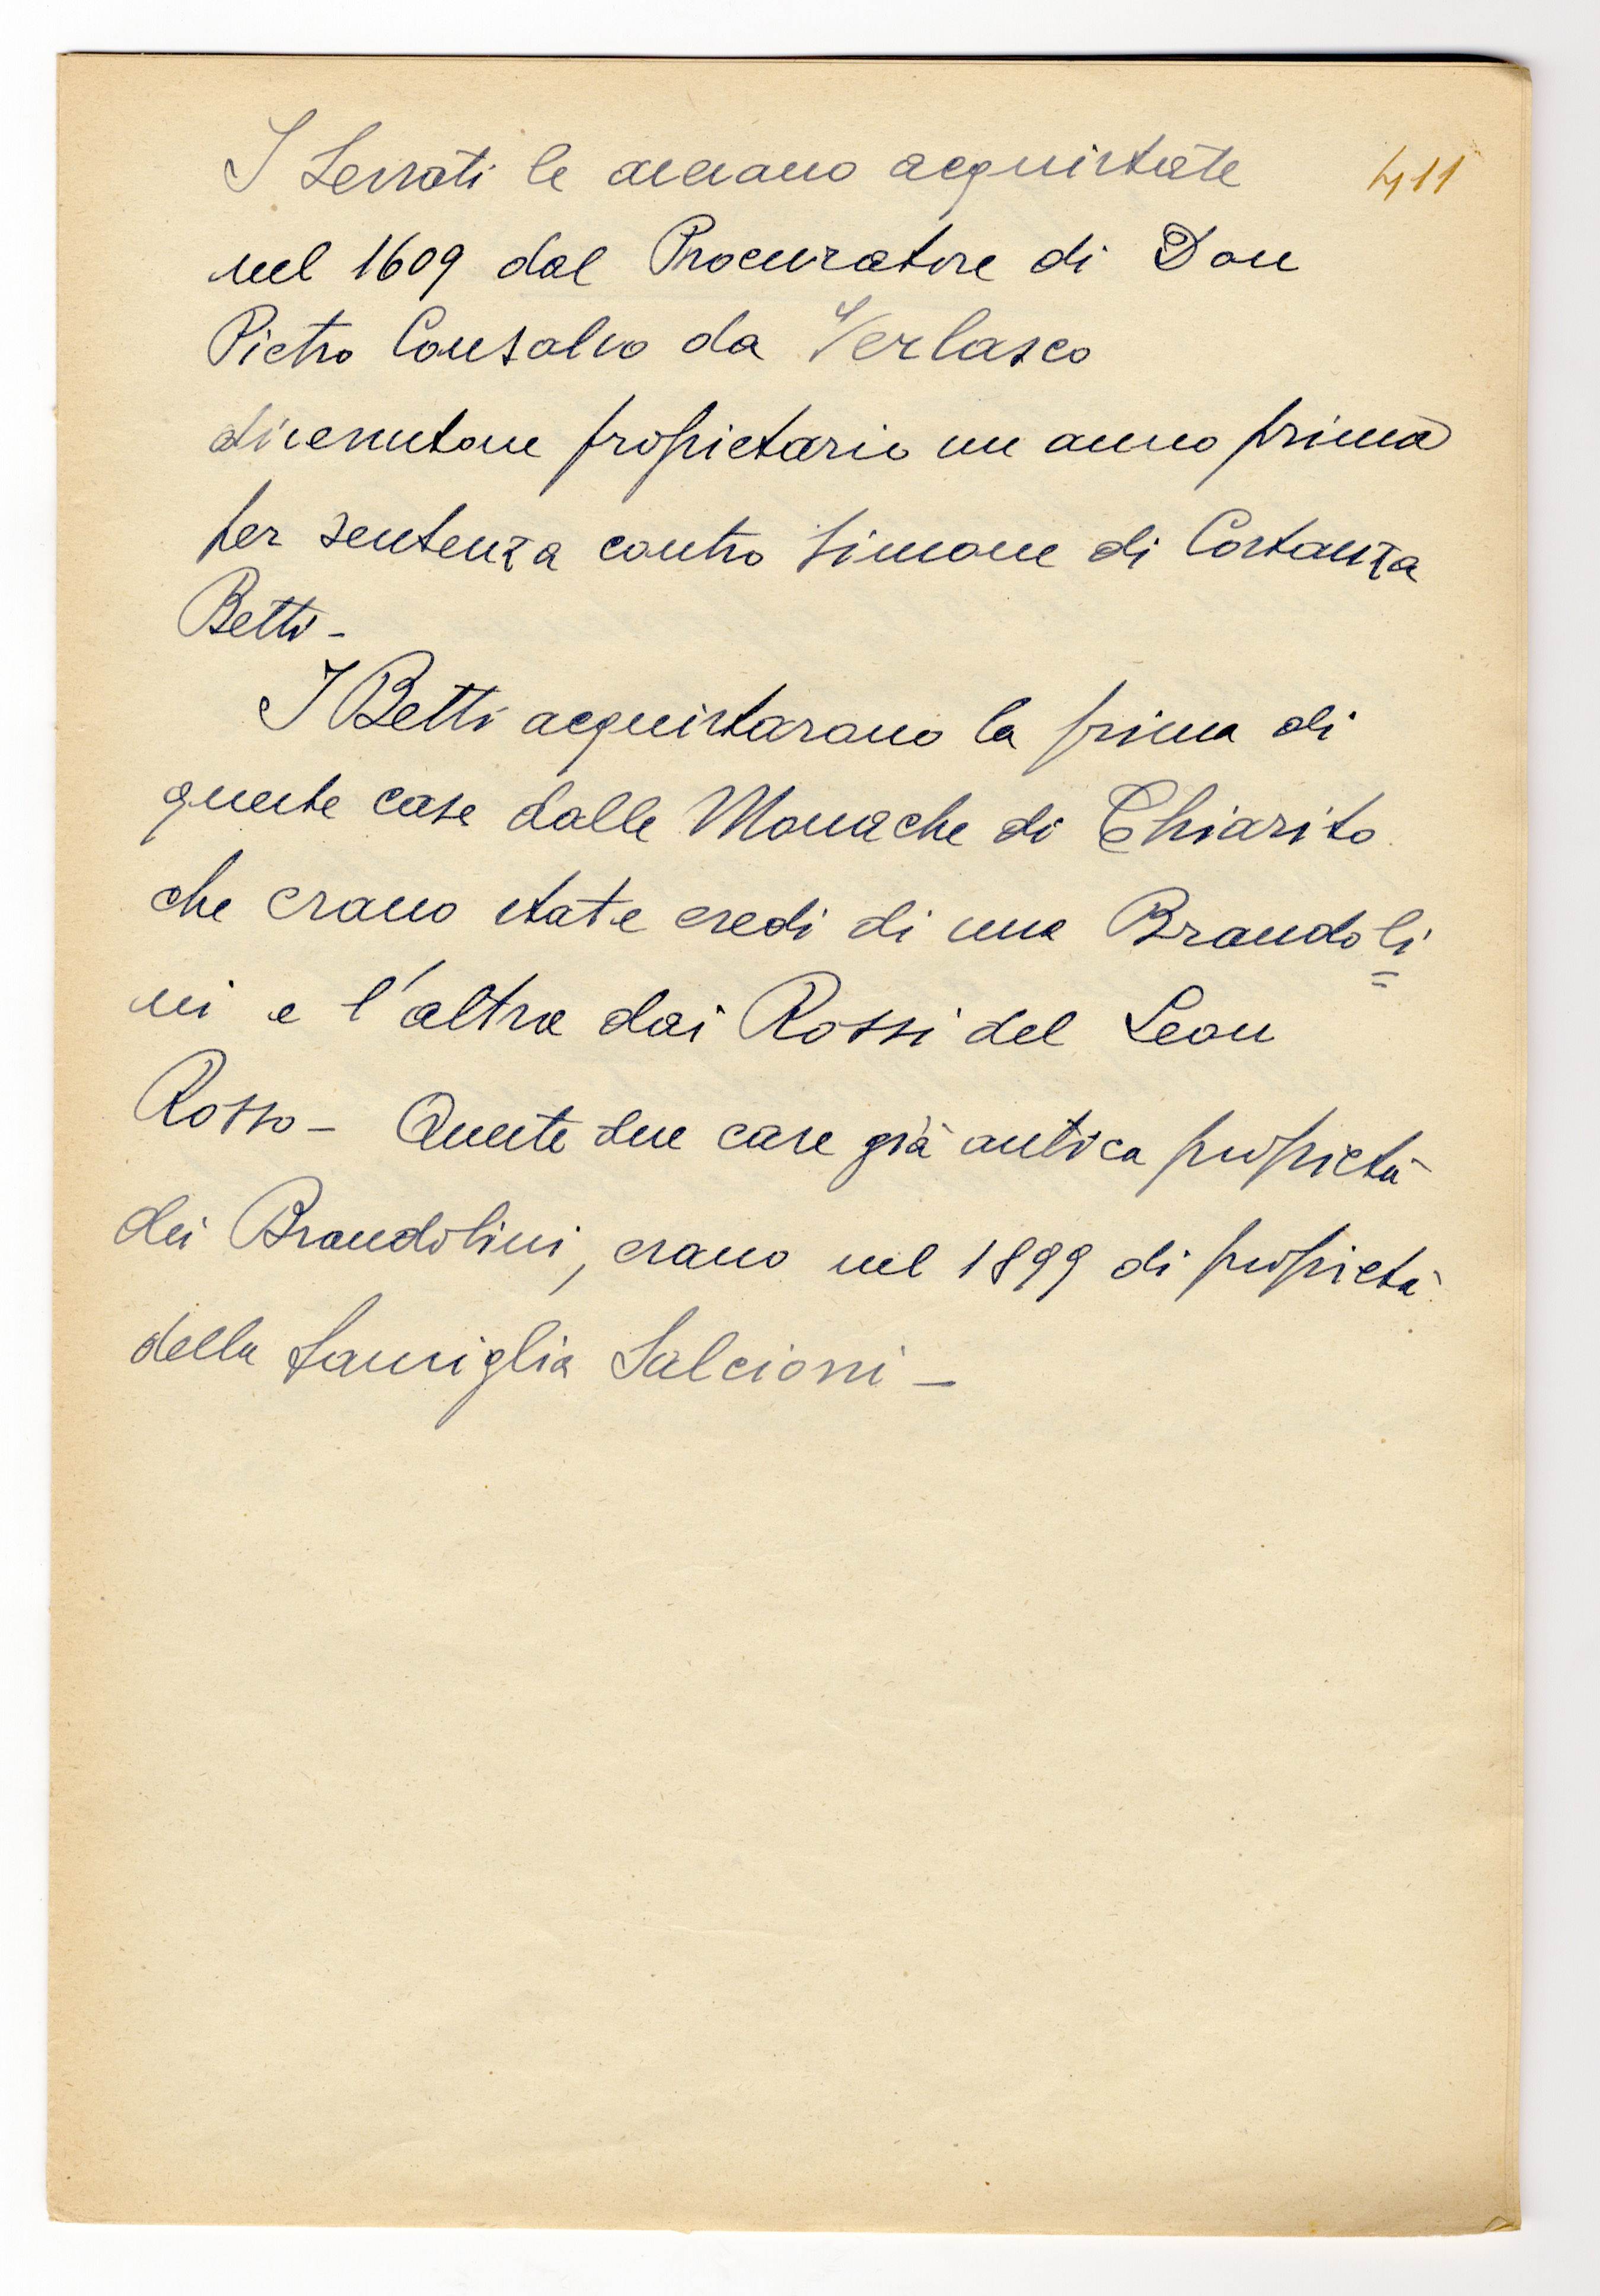 I Serrati le avevano acquistate
411
nel 1609 dal Procuratore di Don
Pietro Consalvo da Verlasco
divenutone propietario un anno prima
per sentenza contro Simone di Costanza
Betti -
I Betti acquistarano la prima di
queste case dalle Monache di Chiarito
che erano state eredi di una Brandoli
=
ni e l'altra dai Rossi del Leon
Rosso - Queste due case già antica propietà
dei Brandolini, erano nel 1899 di propietà
della famiglia Salcioni -